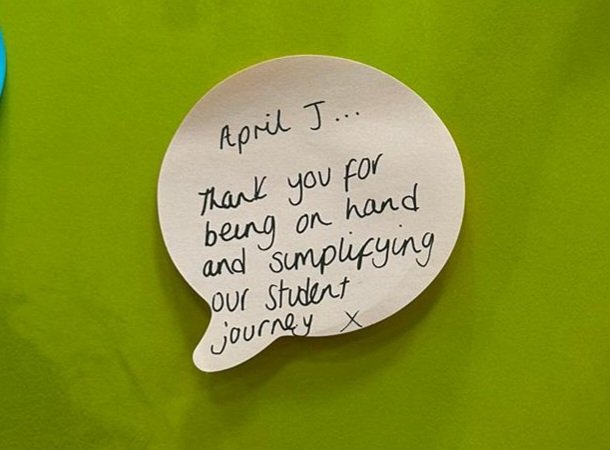 April J...
Thank you for
being on hand
and simplifying
our student
journey X